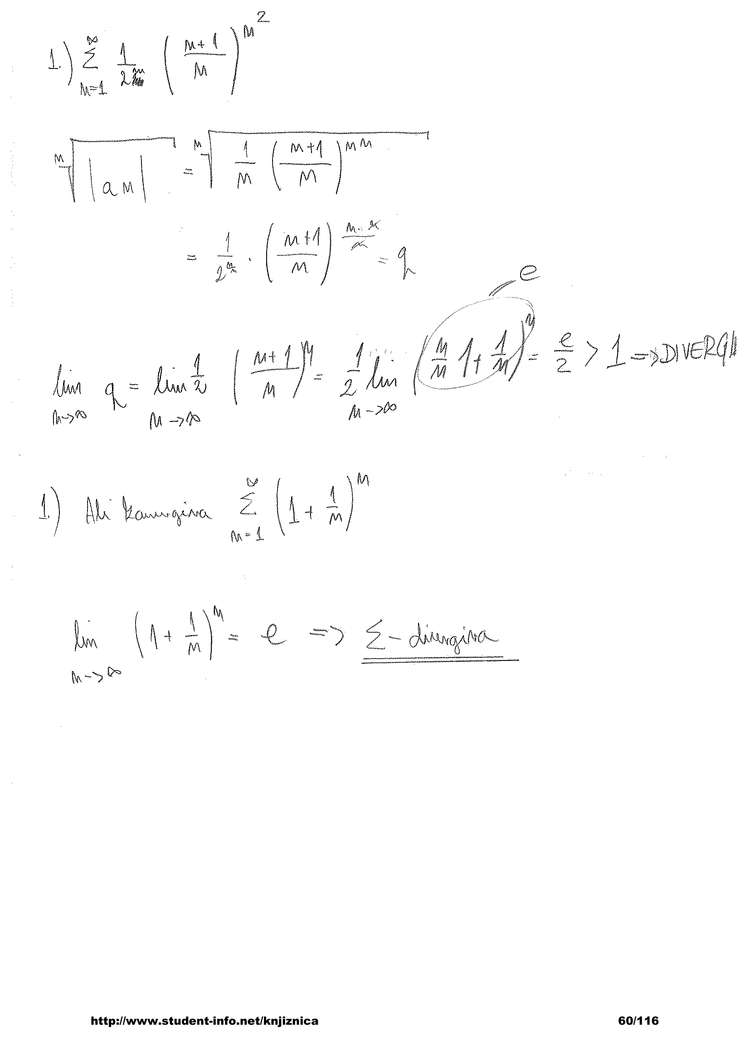 1.) ∑_{n=1}^{∞} 1/2^n ((n+1)/n)^{n^2}
ⁿ√|an| = ⁿ√(1/n ((n+1)/n)^{nn})
= 1/2 · ((n+1)/n)^{n·n/n} = q
e
lim_{n->∞} q = lim_{n->∞} 1/2 ((n+1)/n)^n = 1/2 lim_{n->∞} (n/n 1+1/n)^n = e/2 > 1 => DIVERG
1.) Ali konvergira ∑_{n=1}^{∞} (1+1/n)^n
lim_{n->∞} (1+1/n)^n = e => Σ-divergira
http://www.student-info.net/knjiznica 60/116